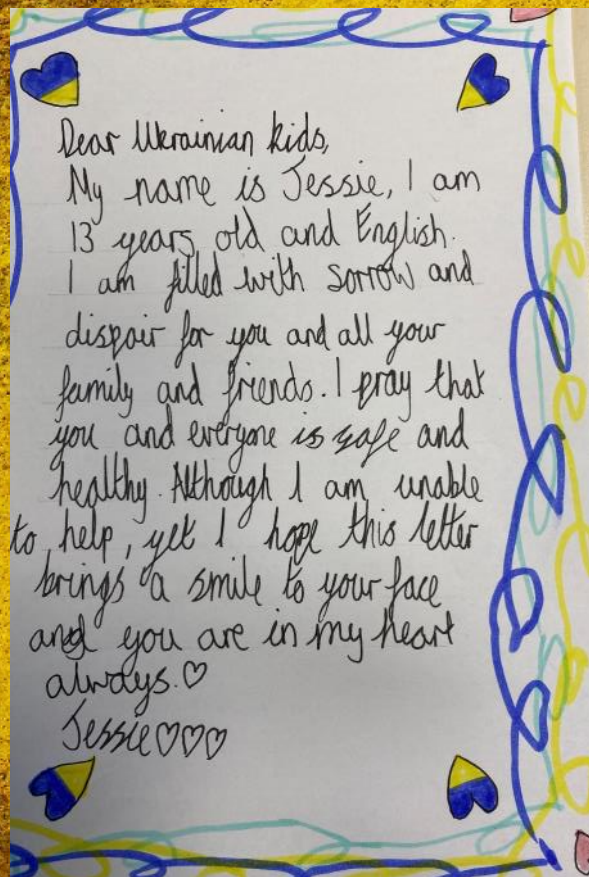 Dear Ukrainian kids,
My name is Jessie, I am
13 years old and English.
I am filled with sorrow and
dispair for you and all your
family and friends. I pray that
you and everyone is safe and
healthy. Although I am unable
to help, yet I hope this letter
brings a smile to your face
and you are in my heart
always.♡
Jessie♡♡♡